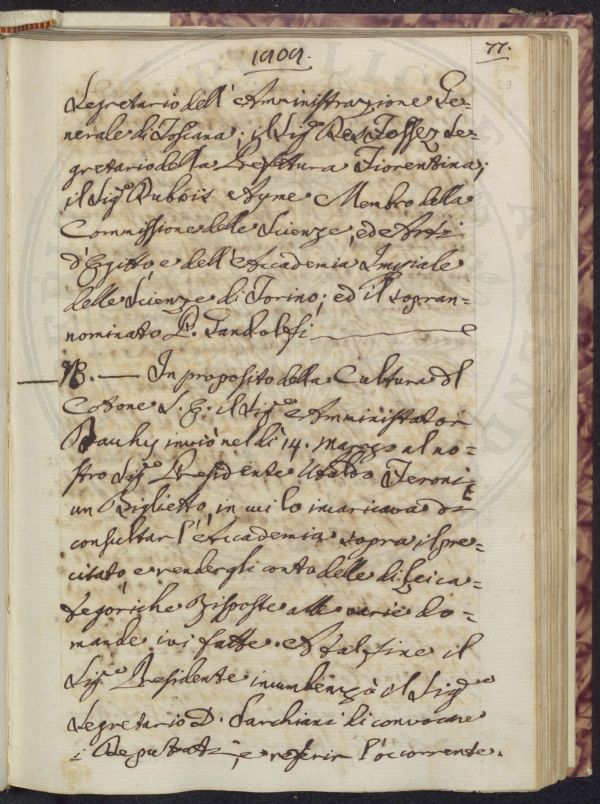 1909.
77.
Segretario dell'Amministrazione Ge=
nerale di Toscana; il Sigʳᵉ Segretario
gretario della Prefettura Fiorentina;
il Sigʳᵉ Dubois Ayme Membro della
Commissione delle Scienze, ed Arti
d'Egitto, e dell'Accademia Imperiale
delle Scienze di Torino; ed il sopran=
nominato P. Gandolfi
NB. — In proposito della Cultura del
Cotone S. E. il Sigʳᵉ Amministrator
Dauchy inviò nel dì 14. Marzo al no=
stro Sigʳᵉ Presidente Ubaldo Feroni
un Biglietto, in cui lo incaricava di
consultar l'Accademia sopra il pre=
citato, e rendergli conto delle di lei ca=
tegoriche Risposte alle varie do=
mande ivi fatte. A tal fine il
Sigʳᵉ Presidente incumbenzò il Sigʳᵉ
Segretario D. Sarchiani di convocare
i Deputati, e referir l'occorrente.